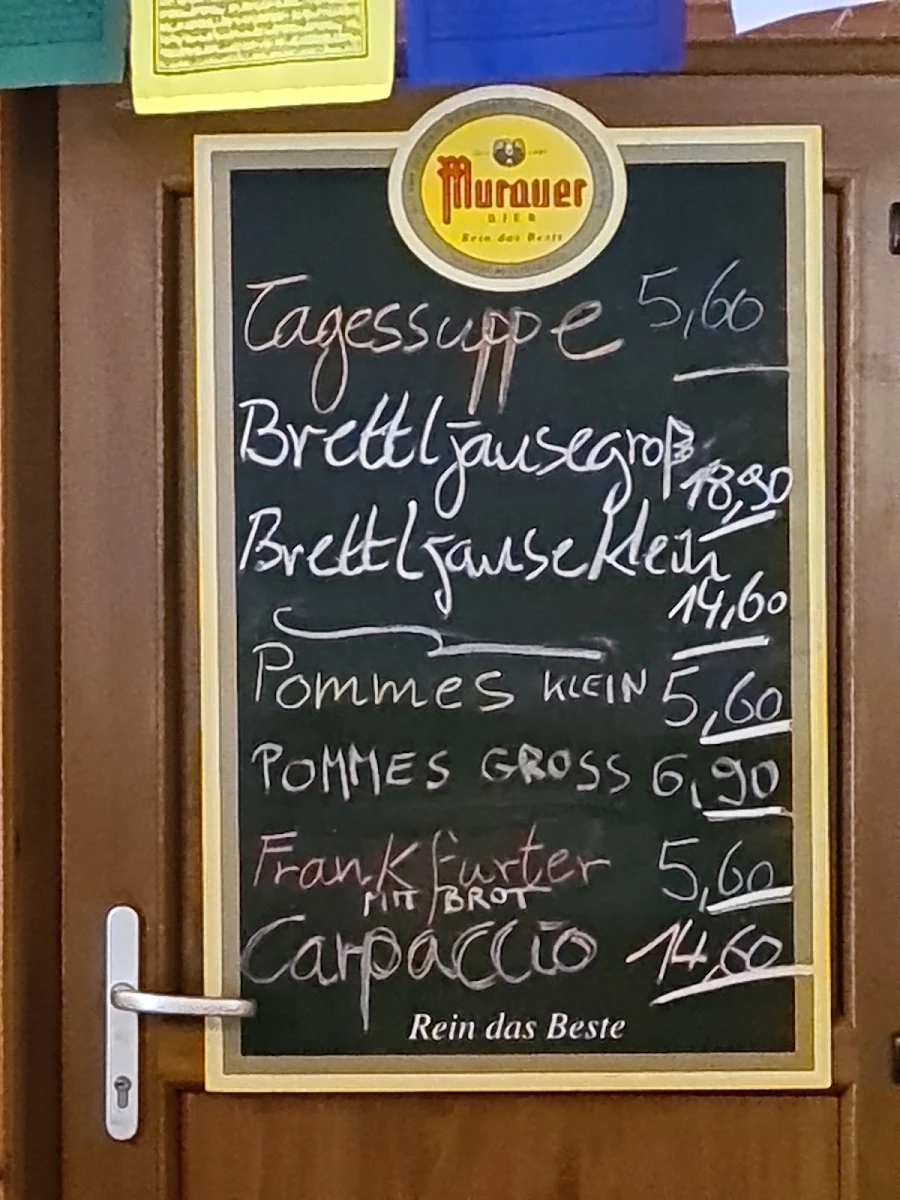 Murauer
BIER
Rein das Beste
Tagessuppe 5,60
Brettljausegroß
18,90
Brettljause klein
14,60
Pommes KLEIN 5,60
POMMES GROSS 6,90
Frankfurter 5,60
MIT BROT
Carpaccio 14,60
Rein das Beste